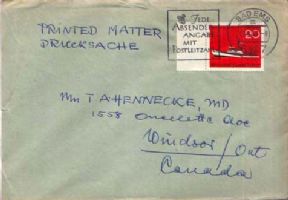 PRINTED MATTER
DRUCKSACHE
JEDE
ABSENDER
ANGABE
MIT
POSTLEITZAHL
BAD EMS
20
Mr T A HENNECKE, MD
1558 Ouellette Ave
Windsor/Ont
Canada